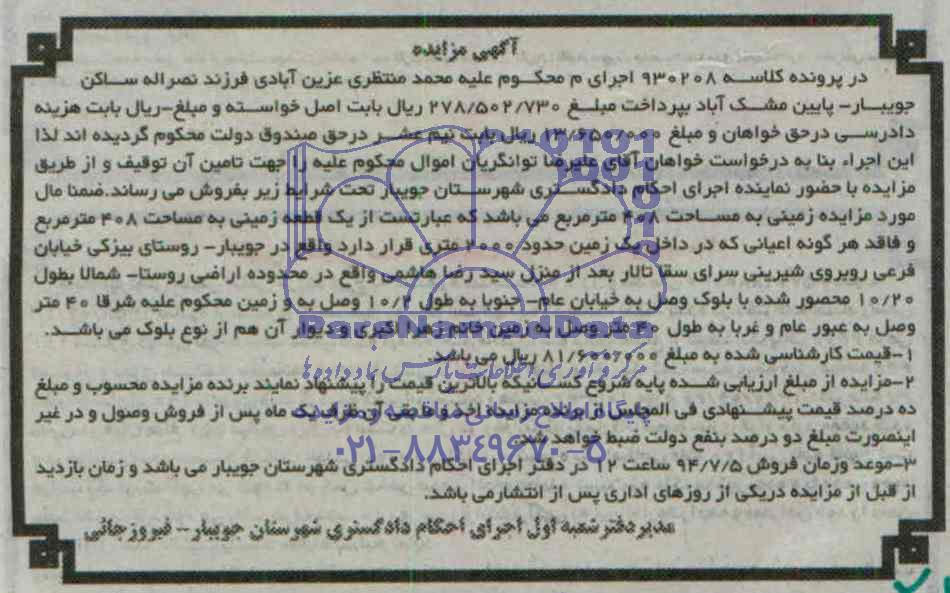 آگهی مزایده
در پرونده کلاسه ۹۳۰۲۰۸ اجرای م محکوم علیه محمد منتظری عزین آبادی فرزند نصراله ساکن
جویبار- پایین مشک آباد بپرداخت مبلغ ۲۷۸/۵۰۲/۷۳۰ ریال بابت اصل خواسته و مبلغ-ریال بابت هزینه
دادرسی درحق خواهان و مبلغ ۱۳/۶۵۰/۰۰۰ ریال بابت نیم عشر درحق صندوق دولت محکوم گردیده اند لذا
این اجراء بنا به درخواست خواهان آقای علیرضا توانگریان اموال محکوم علیه را جهت تامین آن توقیف و از طریق
مزایده با حضور نماینده اجرای احکام دادگستری شهرستان جویبار تحت شرایط زیر بفروش می رساند.ضمنا مال
مورد مزایده زمینی به مساحت ۴۰۸ مترمربع می باشد که عبارتست از یک قطعه زمینی به مساحت ۴۰۸ مترمربع
و فاقد هر گونه اعیانی که در داخل یک زمین حدود ۲۰۰۰ متری قرار دارد واقع در جویبار- روستای بیزکی خیابان
فرعی روبروی شیرینی سرای سقا تالار بعد از منزل سید رضا هاشمی واقع در محدوده اراضی روستا- شمالا بطول
۱۰/۲۰ محصور شده با بلوک وصل به خیابان عام- جنوبا به طول ۱۰/۲ وصل به و زمین محکوم علیه شرقا ۴۰ متر
وصل به عبور عام و غربا به طول ۴۰ متر وصل به زمین خانم زهرا اکبری و دیوار آن هم از نوع بلوک می باشد.
۱-قیمت کارشناسی شده به مبلغ ۸۱/۶۰۰/۰۰۰ ریال می باشد.
۲-مزایده از مبلغ ارزیابی شده پایه شروع کسانیکه بالاترین قیمت را پیشنهاد نمایند برنده مزایده محسوب و مبلغ
ده درصد قیمت پیشنهادی فی المجلس از برنده مزایده اخذ و مابقی آن ظرف یک ماه پس از فروش وصول و در غیر
اینصورت مبلغ دو درصد بنفع دولت ضبط خواهد شد.
۳-موعد وزمان فروش ۹۴/۷/۵ ساعت ۱۲ در دفتر اجرای احکام دادگستری شهرستان جویبار می باشد و زمان بازدید
از قبل از مزایده دریکی از روزهای اداری پس از انتشارمی باشد.
مدیر دفتر شعبه اول اجرای احکام دادگستری شهرستان جویبار - فیروزجائی
ParsNamadData
مرکز فرآوری اطلاعات پارس نماد داده ها
پایگاه اطلاع رسانی مناقصه و مزایده
۰۲۱-۸۸۳۴۹۶۷۰-۵